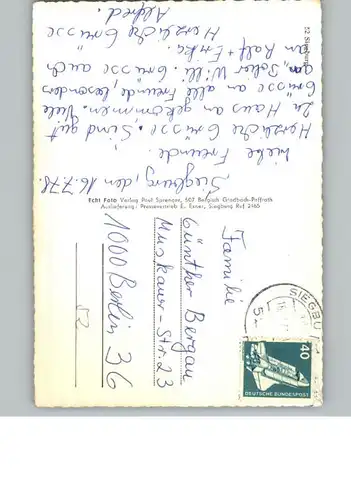 Siegburg, den 16.7.78.
Liebe Freunde.
Herzliche Grüsse. Sind gut
zu Haus an gekommen. Viele
Grüsse an alle Freunde besonders
"Soler Willi. Grüsse auch
an Ralf + Erika.
Herzliche Grüsse
Alfred.
12 Siegburg
Echt Foto Verlag Paul Sprenger, 507 Bergisch Gladbach-Paffrath
Auslieferung: Pressevertrieb E. Exner, Siegburg Ruf 2165
Familie
Günther Bergau
Muskauer-Str. 23
1000 Berlin 36
SIEGBU
5
40
DEUTSCHE BUNDESPOST